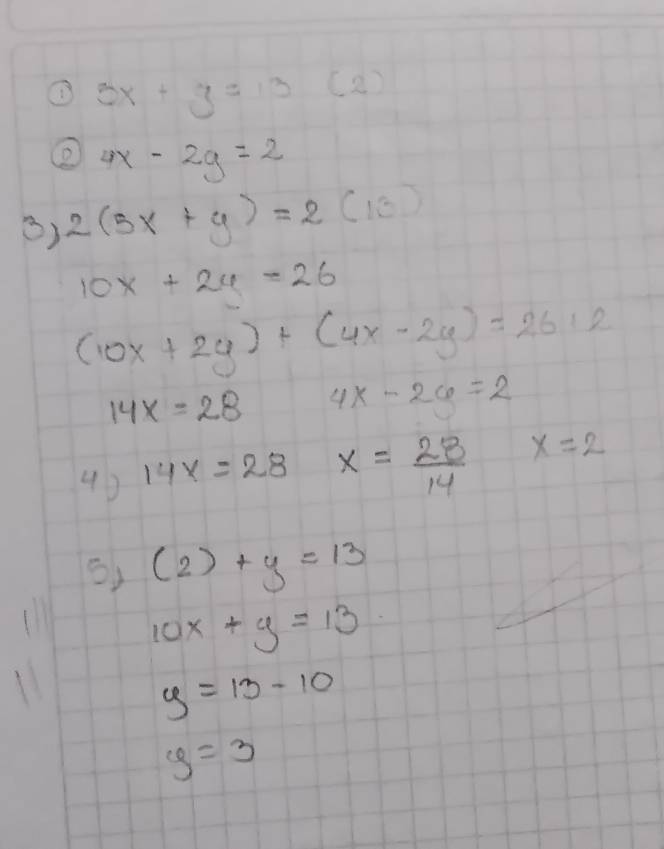 ① 5x + y = 13 (2)
② 4x - 2y = 2
3) 2(5x + y) = 2(13)
10x + 2y = 26
(10x + 2y) + (4x - 2y) = 26 + 2
14x = 28 4x - 2y = 2
4) 14x = 28 x = 28/14 x = 2
5) (2) + y = 13
10x + y = 13
y = 13 - 10
y = 3